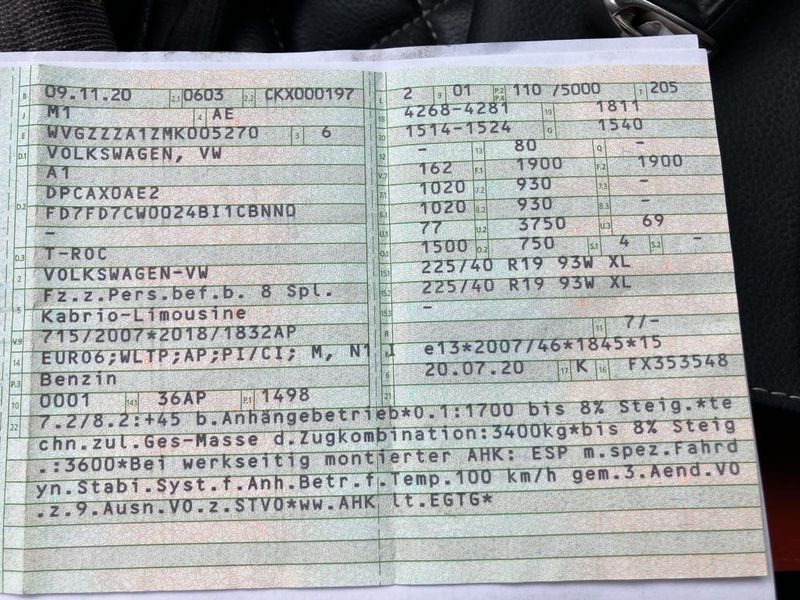 B 09.11.20 2.1 0603 2.2 CKX000197
J M1 4 AE
E WVGZZZA1ZMK005270 3 6
D.1 VOLKSWAGEN, VW
A1
D.2 DPCAX0AE2
FD7FD7CW0024BI1CBNNO
–
D.3 T-ROC
2 VOLKSWAGEN-VW
5 Fz.z.Pers.bef.b. 8 Spl.
Kabrio-Limousine
V.9 715/2007*2018/1832AP
14 EURO6;WLTP;AP;PI/CI; M, N1 I
P.3 Benzin
10 0001 14.1 36AP P.1 1498
L 2 9 01 P.2 P.4 110 /5000 T 205
18 4268-4281 19 1811
20 1514-1524 G 1540
12 – 13 80 Q –
V.7 162 F.1 1900 F.2 1900
7.1 1020 7.2 930 7.3 –
8.1 1020 8.2 930 8.3 –
U.1 77 U.2 3750 U.3 69
O.1 1500 O.2 750 S.1 4 S.2 –
15.1 225/40 R19 93W XL
15.2 225/40 R19 93W XL
15.3 –
R 11 7/–
K e13*2007/46*1845*15
6 20.07.20 17 K 16 FX353548
21
22 7.2/8.2:+45 b.Anhängebetrieb*0.1:1700 bis 8% Steig.*te
chn.zul.Ges-Masse d.Zugkombination:3400kg*bis 8% Steig
.:3600*Bei werkseitig montierter AHK: ESP m.spez.Fahrd
yn.Stabi.Syst.f.Anh.Betr.f.Temp.100 km/h gem.3.Aend.VO
.z.9.Ausn.VO.z.STVO*ww.AHK lt.EGTG*